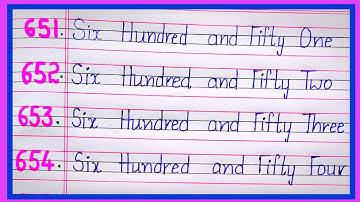 651. Six Hundred and Fifty One
652. Six Hundred and Fifty Two
653. Six Hundred and Fifty Three
654. Six Hundred and Fifty Four